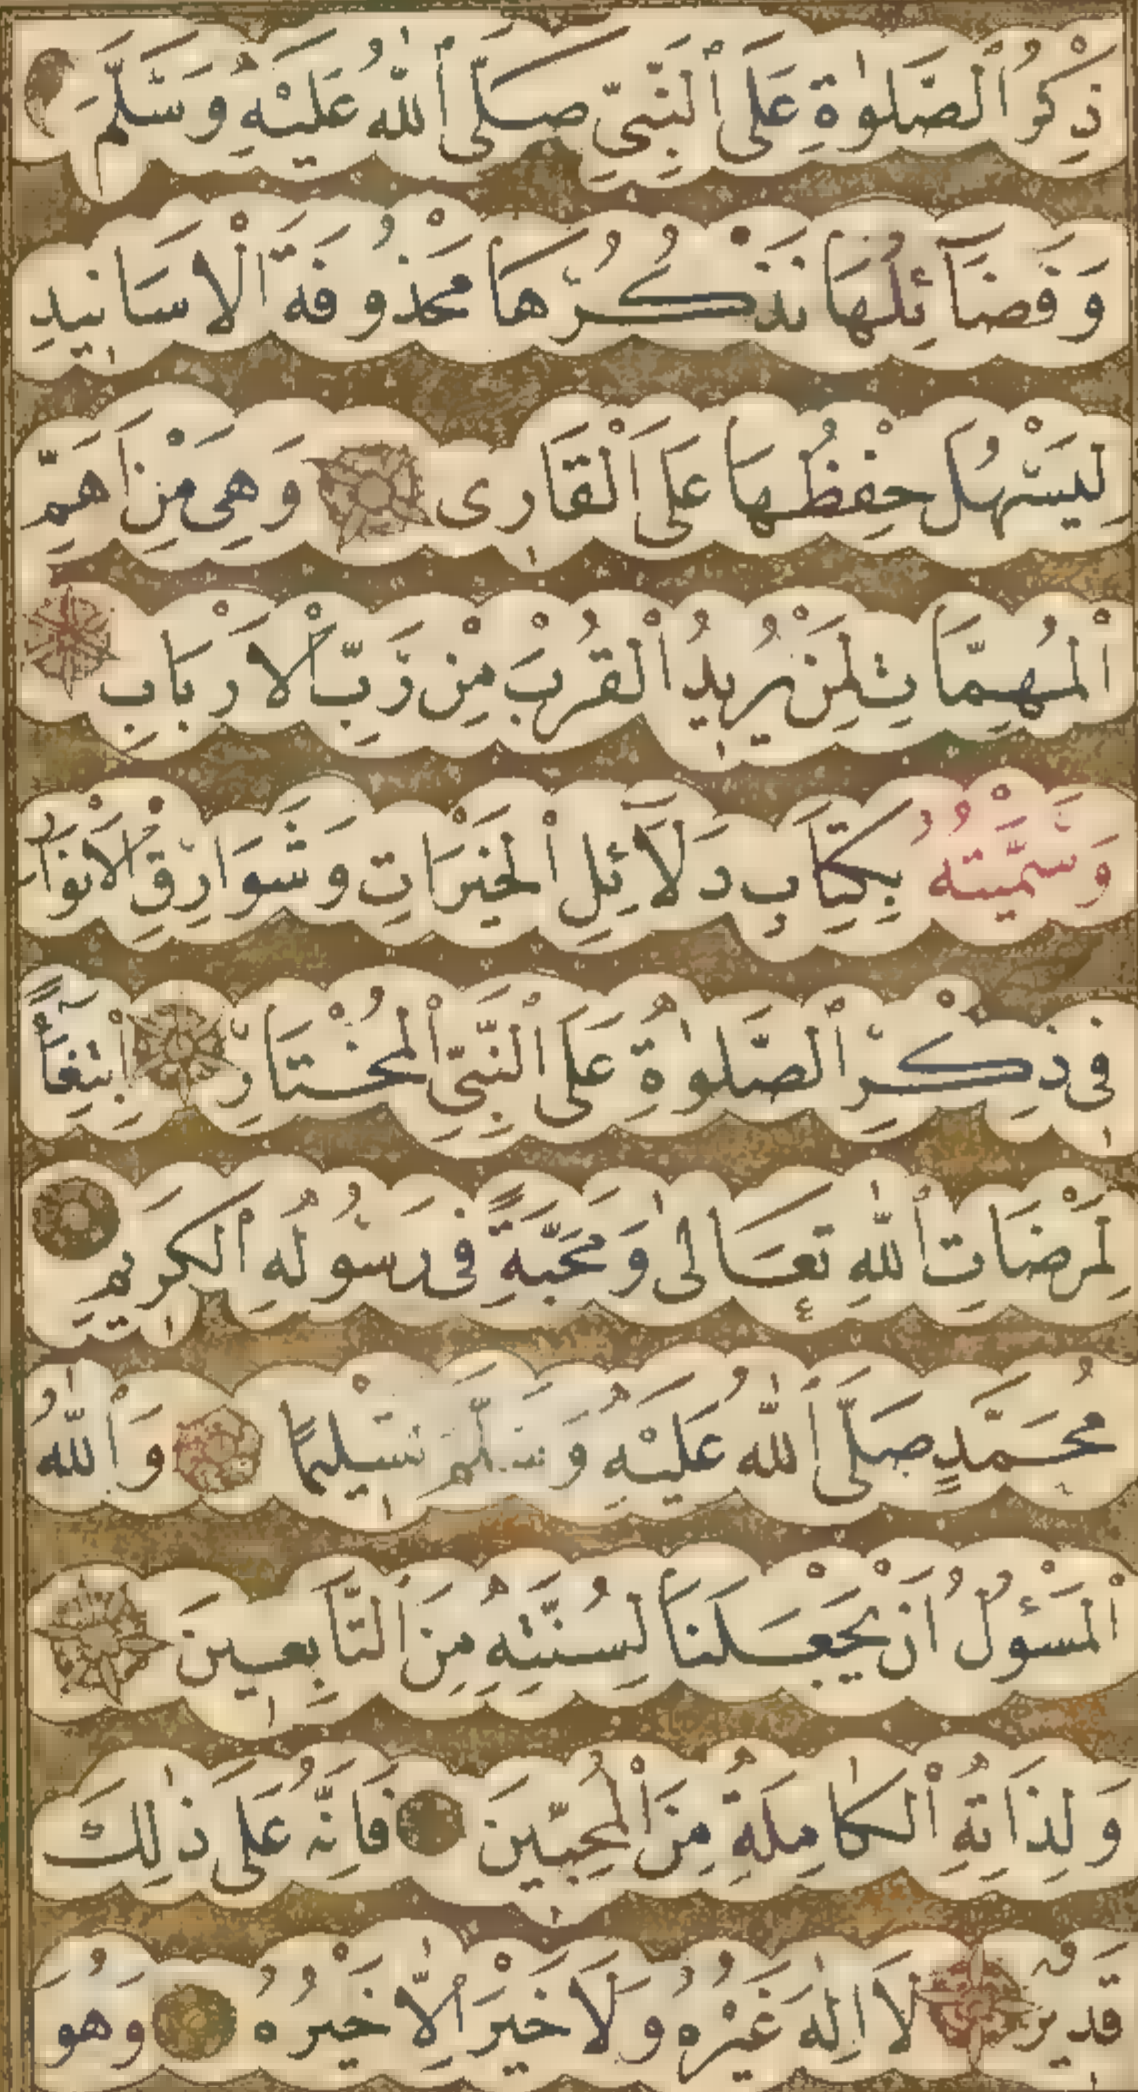 ذِكْرُ ٱلصَّلوٰةِ عَلَى ٱلنَّبِيِّ صَلَّى ٱللّٰهُ عَلَيْهِ وَسَلَّمَ
وَفَضَآئِلُهَا نَذْكُرُهَا مَحْذُوفَةَ الْاَسَانِيدِ
لِيَسْهُلَ حِفْظُهَا عَلَى الْقَارِى وَهِىَ مِنْ اَهَمِّ
الْمُهِمَّاتِ لِمَنْ يُرِيدُ الْقُرْبَ مِنْ رَبِّ الْاَرْبَابِ
وَسَمَّيْتُهُ بِكِتَابِ دَلَآئِلِ الْخَيْرَاتِ وَشَوَارِقِ الْاَنْوَارِ
فِى ذِكْرِ ٱلصَّلوٰةِ عَلَى ٱلنَّبِىِّ الْمُخْتَارِ اِبْتِغَآءً
لِمَرْضَاتِ ٱللّٰهِ تَعَالٰى وَمَحَبَّةً فِى رَسُولِهِ الْكَرِيمِ
مُحَمَّدٍ صَلَّى ٱللّٰهُ عَلَيْهِ وَسَلَّمَ تَسْلِيمًا وَٱللّٰهُ
الْمَسْؤُلُ اَنْ يَجْعَلَنَا لِسُنَّتِهِ مِنَ ٱلتَّابِعِينَ
وَلِذَاتِهِ الْكَامِلَةِ مِنَ الْمُحِبِّينَ فَاِنَّهُ عَلَى ذٰلِكَ
قَدِيرٌ لَا اِلٰهَ غَيْرُهُ وَلَا خَيْرَ اِلَّا خَيْرُهُ وَهُوَ